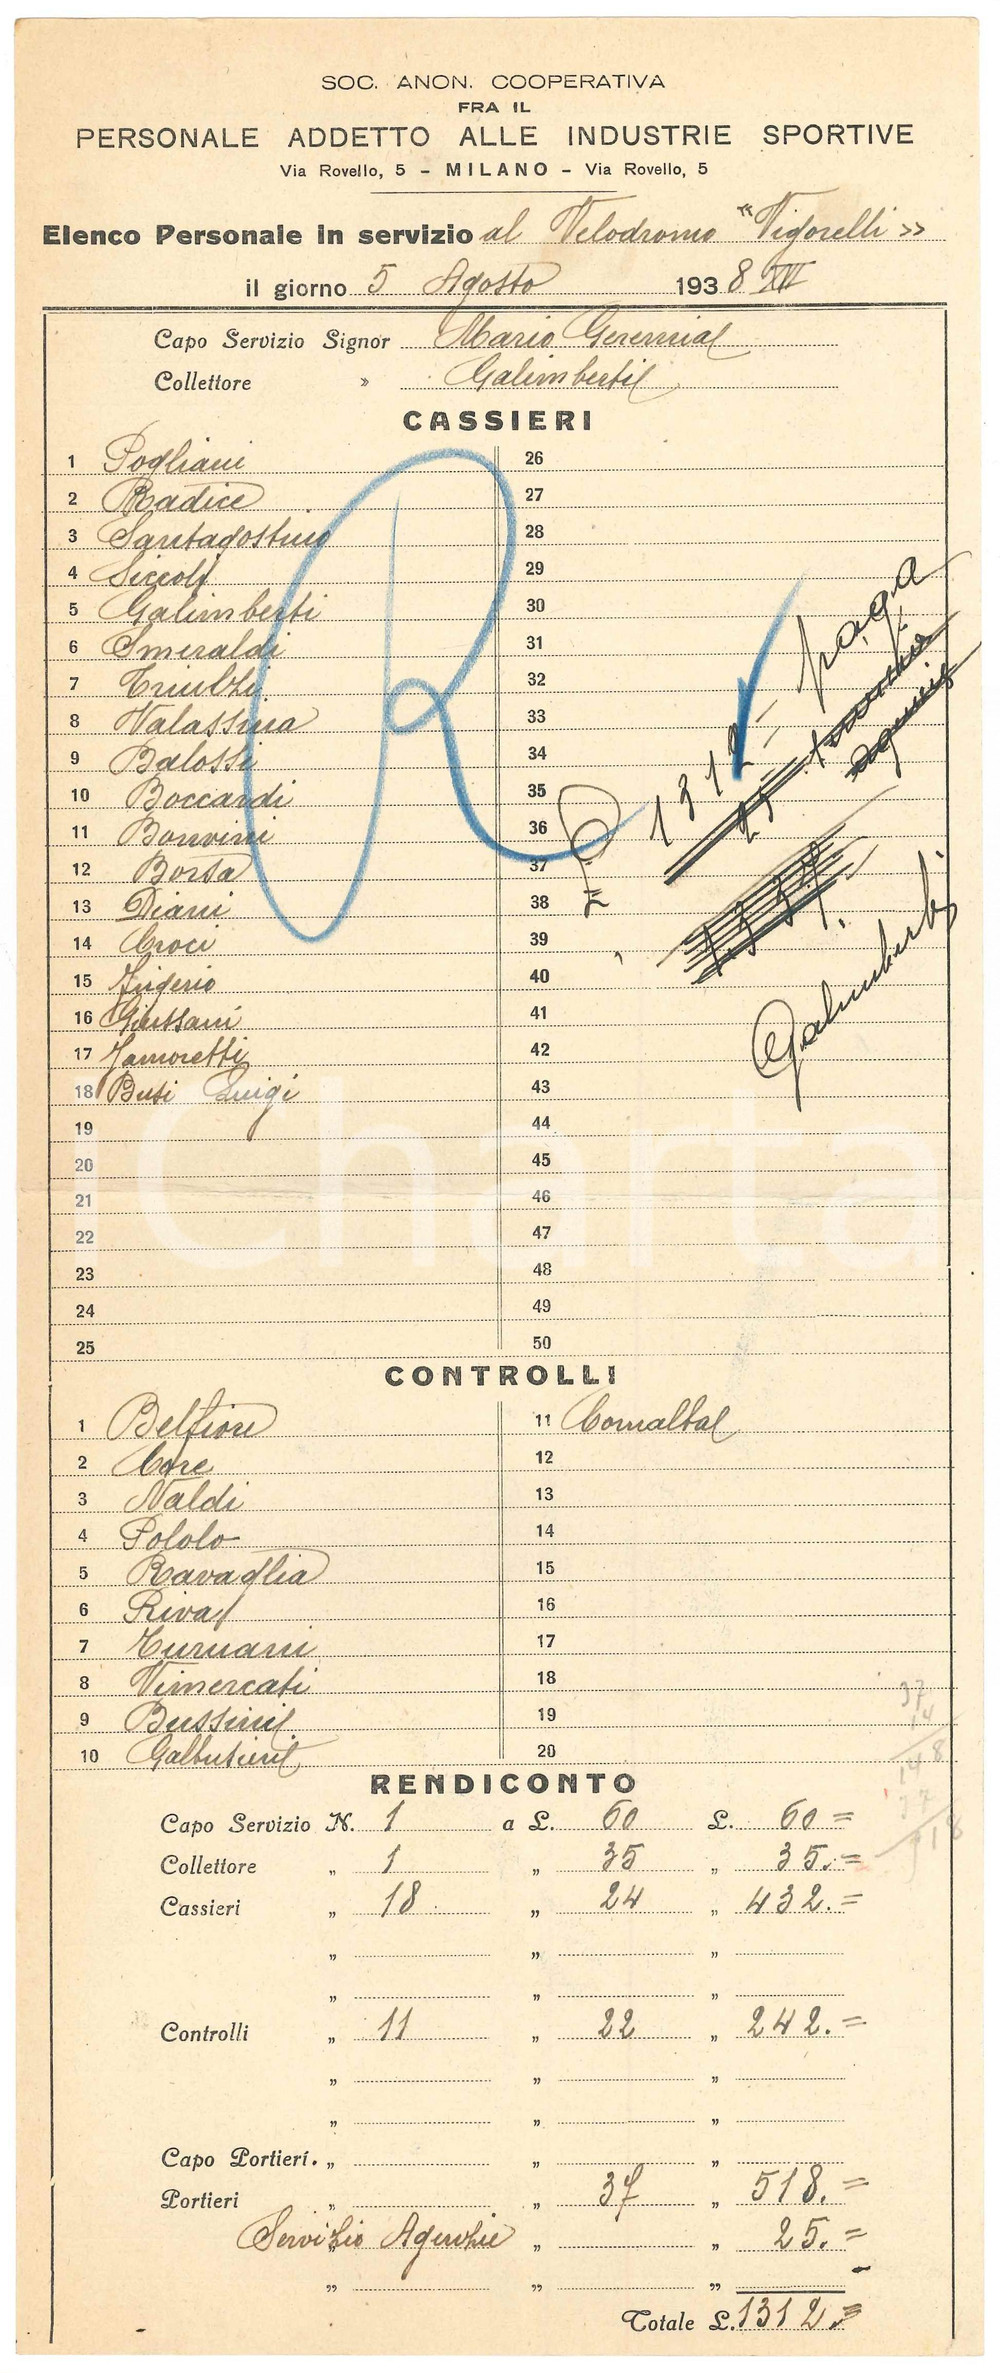 SOC. ANON. COOPERATIVA
FRA IL
PERSONALE ADDETTO ALLE INDUSTRIE SPORTIVE
Via Rovello, 5 - MILANO - Via Rovello, 5
Elenco Personale in servizio al Velodromo "Vigorelli »
il giorno 5 Agosto 1938 XVI
Capo Servizio Signor Mario Geremia
Collettore » Galimberti
CASSIERI
1 Pogliani 26
2 Radice 27
3 Santagostino 28
4 Siccoli 29
5 Galimberti 30
6 Smeraldi 31
7 32
8 Valassina 33
9 Balossi 34
10 Boccardi 35
11 Bonvini 36
12 Borsa 37
13 Diani 38
14 Croci 39
15 Frigerio 40
16 Giussani 41
17 Zamoretti 42
18 Busi Luigi 43
19 44
20 45
21 46
22 47
23 48
24 49
25 50
R
1312 = paga
25
1337.
Galimberti
CONTROLLI
1 Belfiore 11
2 Core 12
3 Naldi 13
4 Pololo 14
5 Ravaglia 15
6 Riva 16
7 17
8 Vimercati 18
9 Bussini 19
10 Galbusieri 20
37
14
148
37
518
RENDICONTO
Capo Servizio N. 1 a L. 60 L. 60 =
Collettore „ 1 „ 35 „ 35. =
Cassieri „ 18 „ 24 „ 432. =
„ „ „
„ „ „
Controlli „ 11 „ 22 „ 242. =
„ „ „
„ „ „
Capo Portieri. „ „ „
Portieri „ „ 37 „ 518. =
Servizio Agenzie „ „ 25. =
„ „ „
Totale L. 1312. =
iCharta